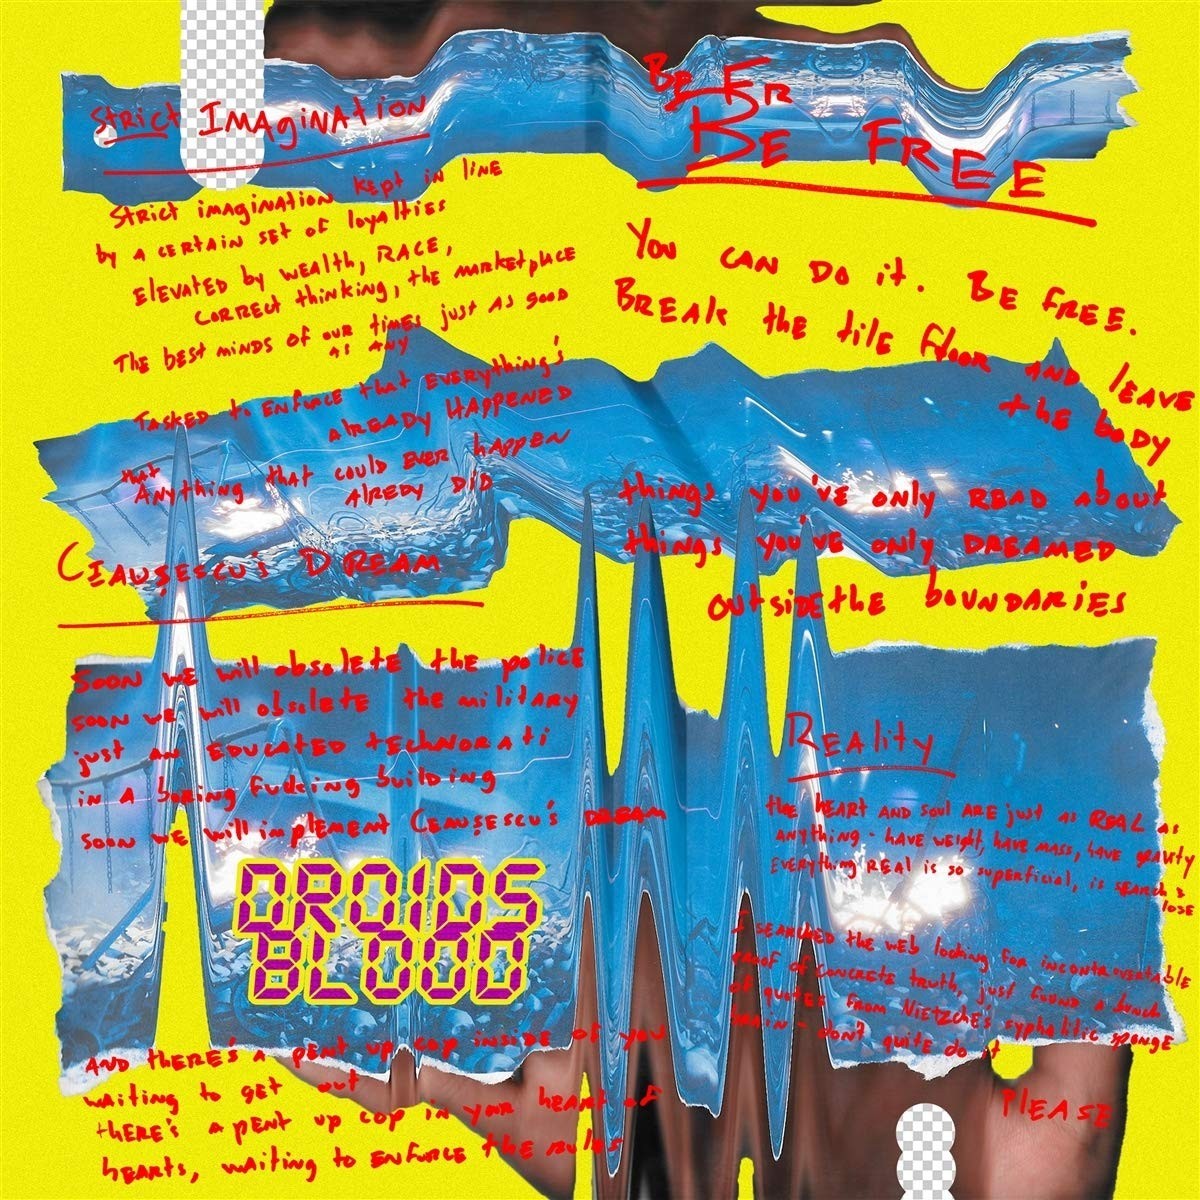 Strict Imagination
Strict imagination kept in line
by a certain set of loyalties
elevated by wealth, race,
correct thinking, the marketplace
The best minds of our times just as good
as any
Tasked to enforce that everything's
already happened
that
Anything that could ever happen
alredy did
Ceaușescu's Dream
soon we will obsolete the police
soon we will obsolete the military
just an educated technorati
in a boring fucking building
soon we will implement Ceaușescu's dream
DROIDS
BLOOD
and there's a pent up cop inside of you
waiting to get out
there's a pent up cop in your heart of
hearts, waiting to enforce the rules
Be Fr
Be Free
You can do it. Be free.
Break the tile floor and leave
the body
things you've only read about
things you've only dreamed
outside the boundaries
Reality
the heart and soul are just as real as
anything - have weight, have mass, have gravity
everything real is so superficial, is search &
lose
I searched the web looking for incontrovertable
proof of concrete truth, just found a bunch
of quotes from Nietzche's syphalitic sponge
brain - don't quite do it
please